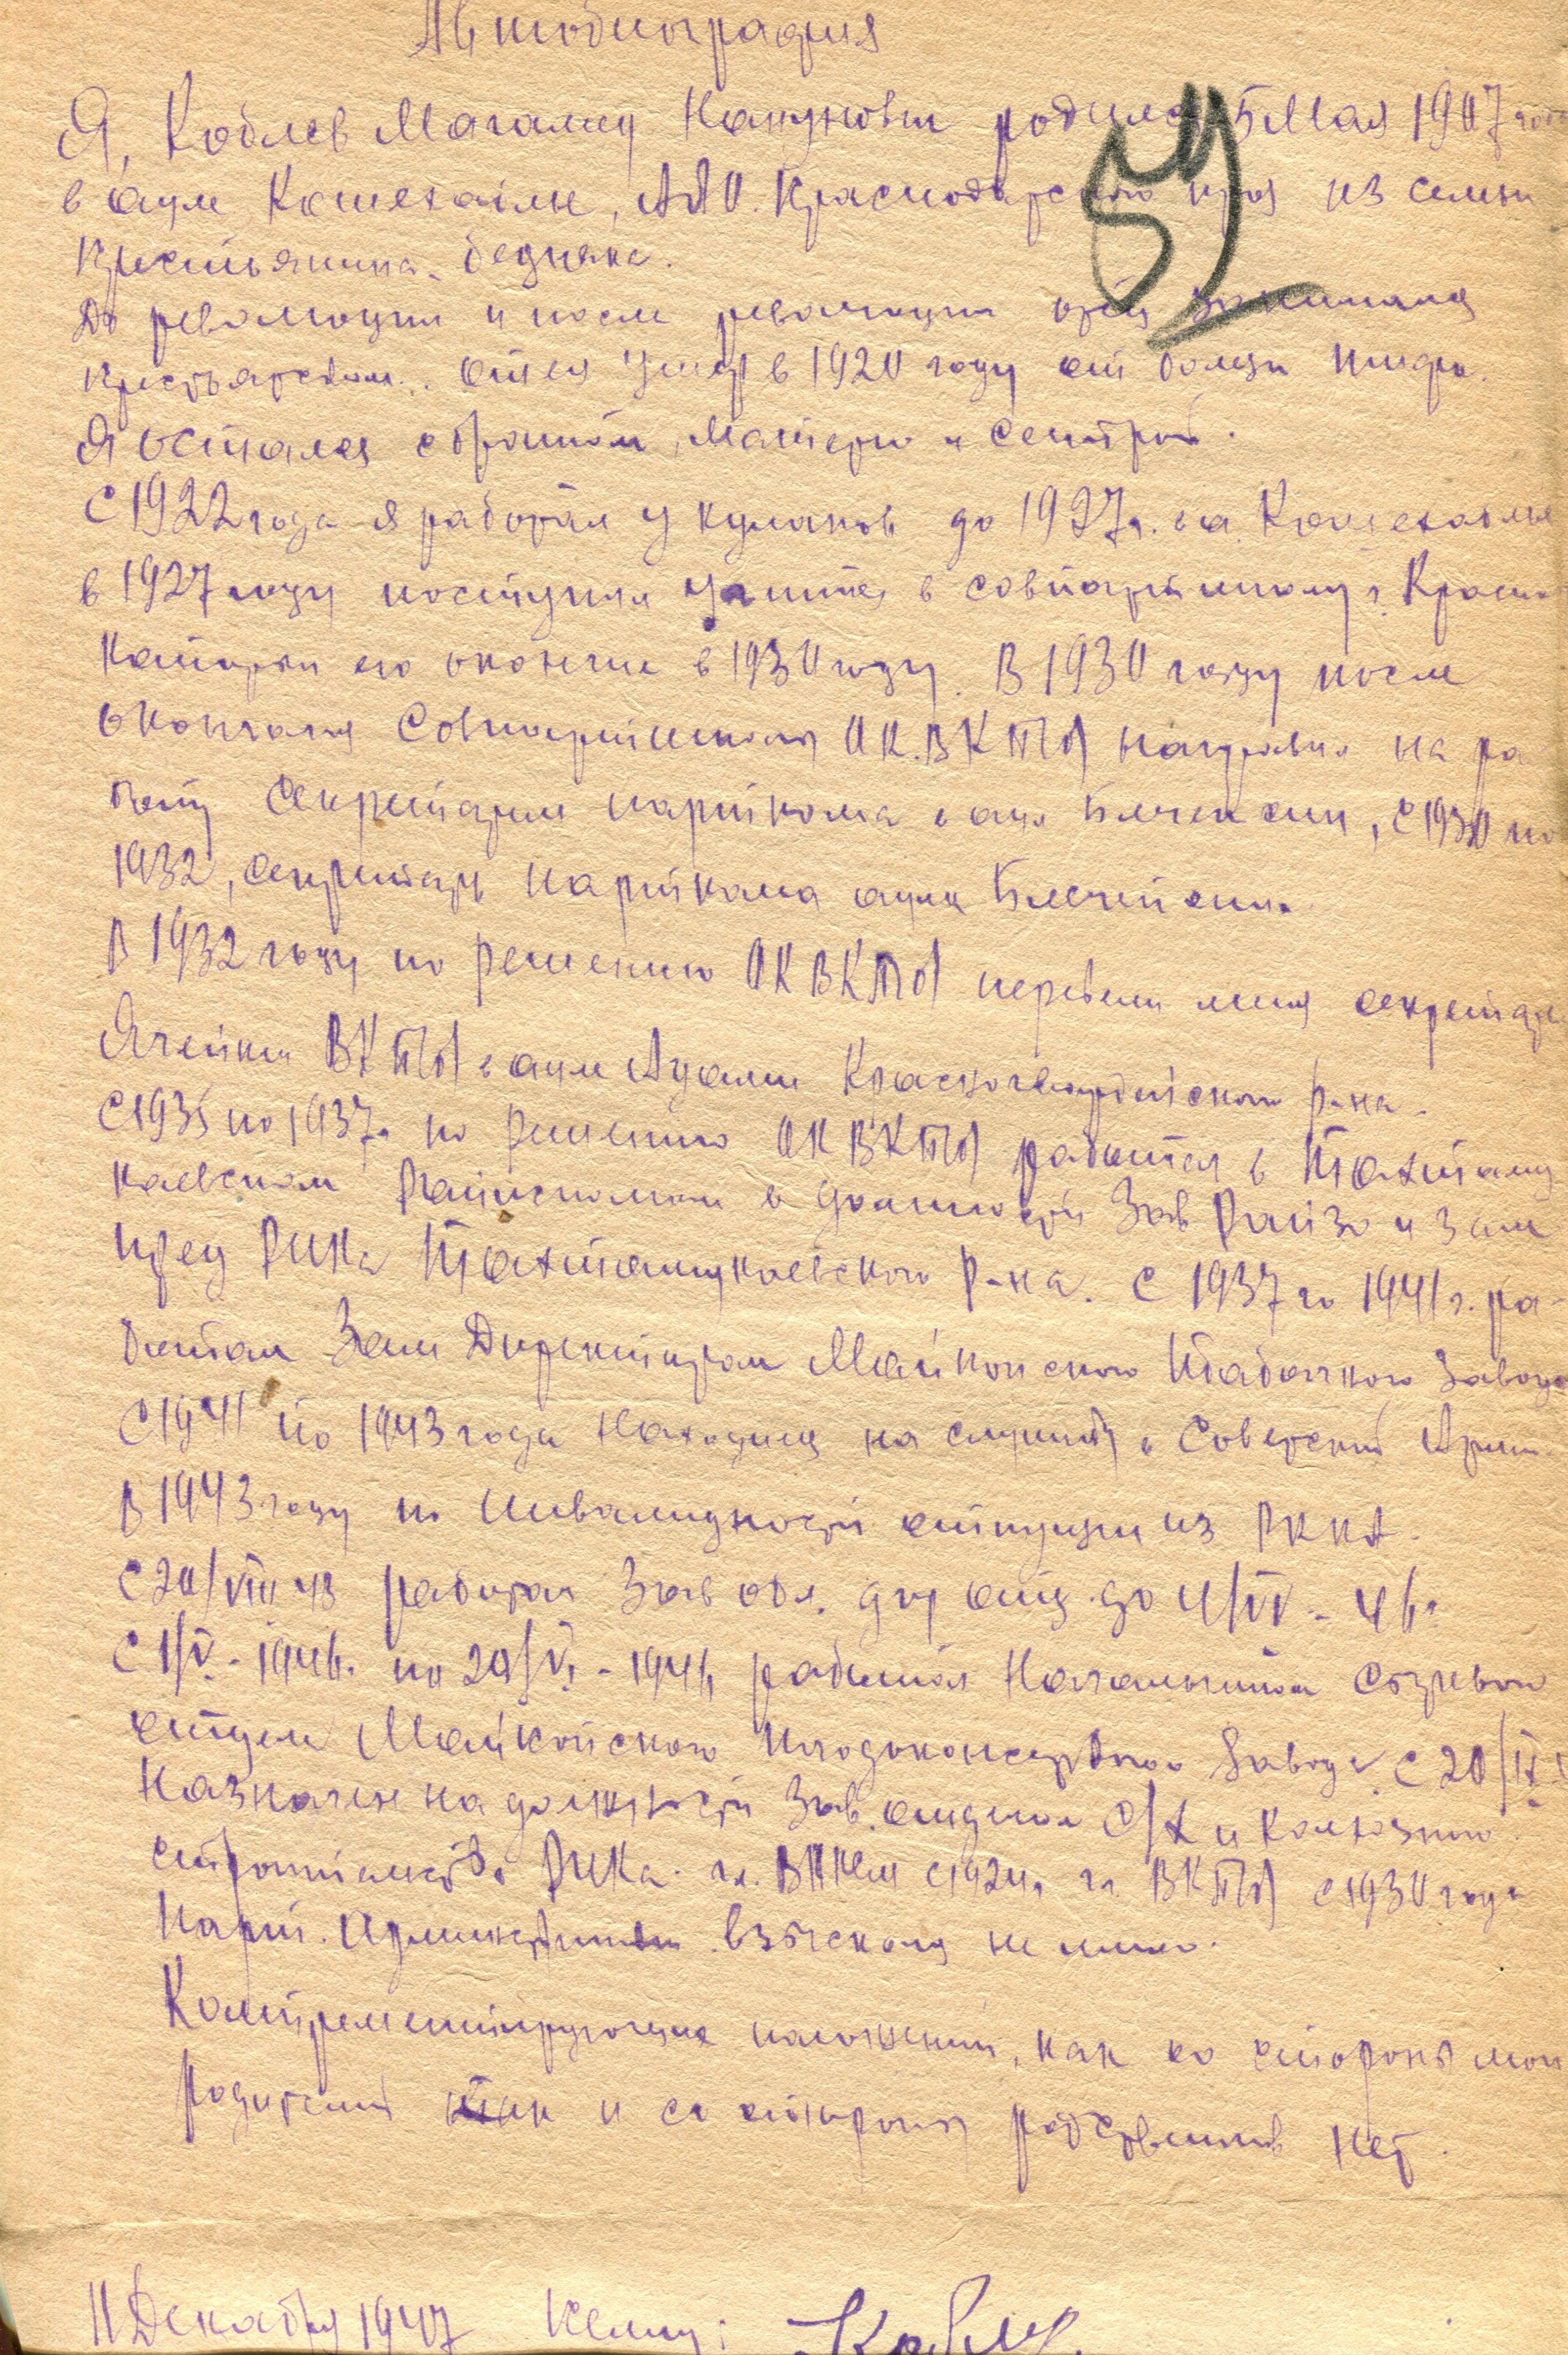 Автобиография
Я, Коблев Магамед родился 5 Мая 1907 года
в ауле Кошехабле, ААО. Краснодарского края из семьи
крестьянина-бедняка.
До революции и после революции отец занимался
крестьянством. Отец умер в 1920 году от болезни тифа.
Я остался с братом, матерю и сестрой.
С 1922 года я работал у кулаков до 1927 г. в а. Кошехабле
в 1927 году поступил учится в совпартшколу г. Красно
которы его окончил в 1930 году. В 1930 году после
окончания Совпартшколы ОК.ВКПб) направил на ра
боту Секретарем парткома в аул Блечепсин, с 1930 по
1932, секретарь парткома аула Блечепсин.
В 1932 году по решению ОК ВКПб) перевели меня секретаре
Ячейки ВКПб) в аул Адамий Красногвардейского р-на.
С 1935 по 1937 г. по решению ОК ВКПб) работал в Тахтаму
каевском Райисполком в должности Зав Райзо и зам
пред РИКа Тахтамукаевского р-на. С 1937 по 1941 г. ра-
ботал Зам Директором Майкопского Табачного завода
С 1941 по 1943 года находился на службе в Советской Армии
В 1943 году по инвалидности отпущен из РККА.
С 20/VIII 43 работал Зав обл. дор отд. до 4/IV - 46 г.
С 1/V - 1946 г. по 20/VI - 1946 работал Начальником Сырьевои
отдел Майкопского Плодоконсервного Завода. С 20/IX
Назначен на должность Зав. отделом С/Х и колхозного
строительства РИКа. чл. ВЛКСМ с 1924 г. чл. ВКПб) с 1930 года
Парт. Административн взыскания не имею.
Компрометирующие положений, как со стороны мои
родителей так и со стороны родственников нет.
11 Декабря 1947 К сему: Коблев
59